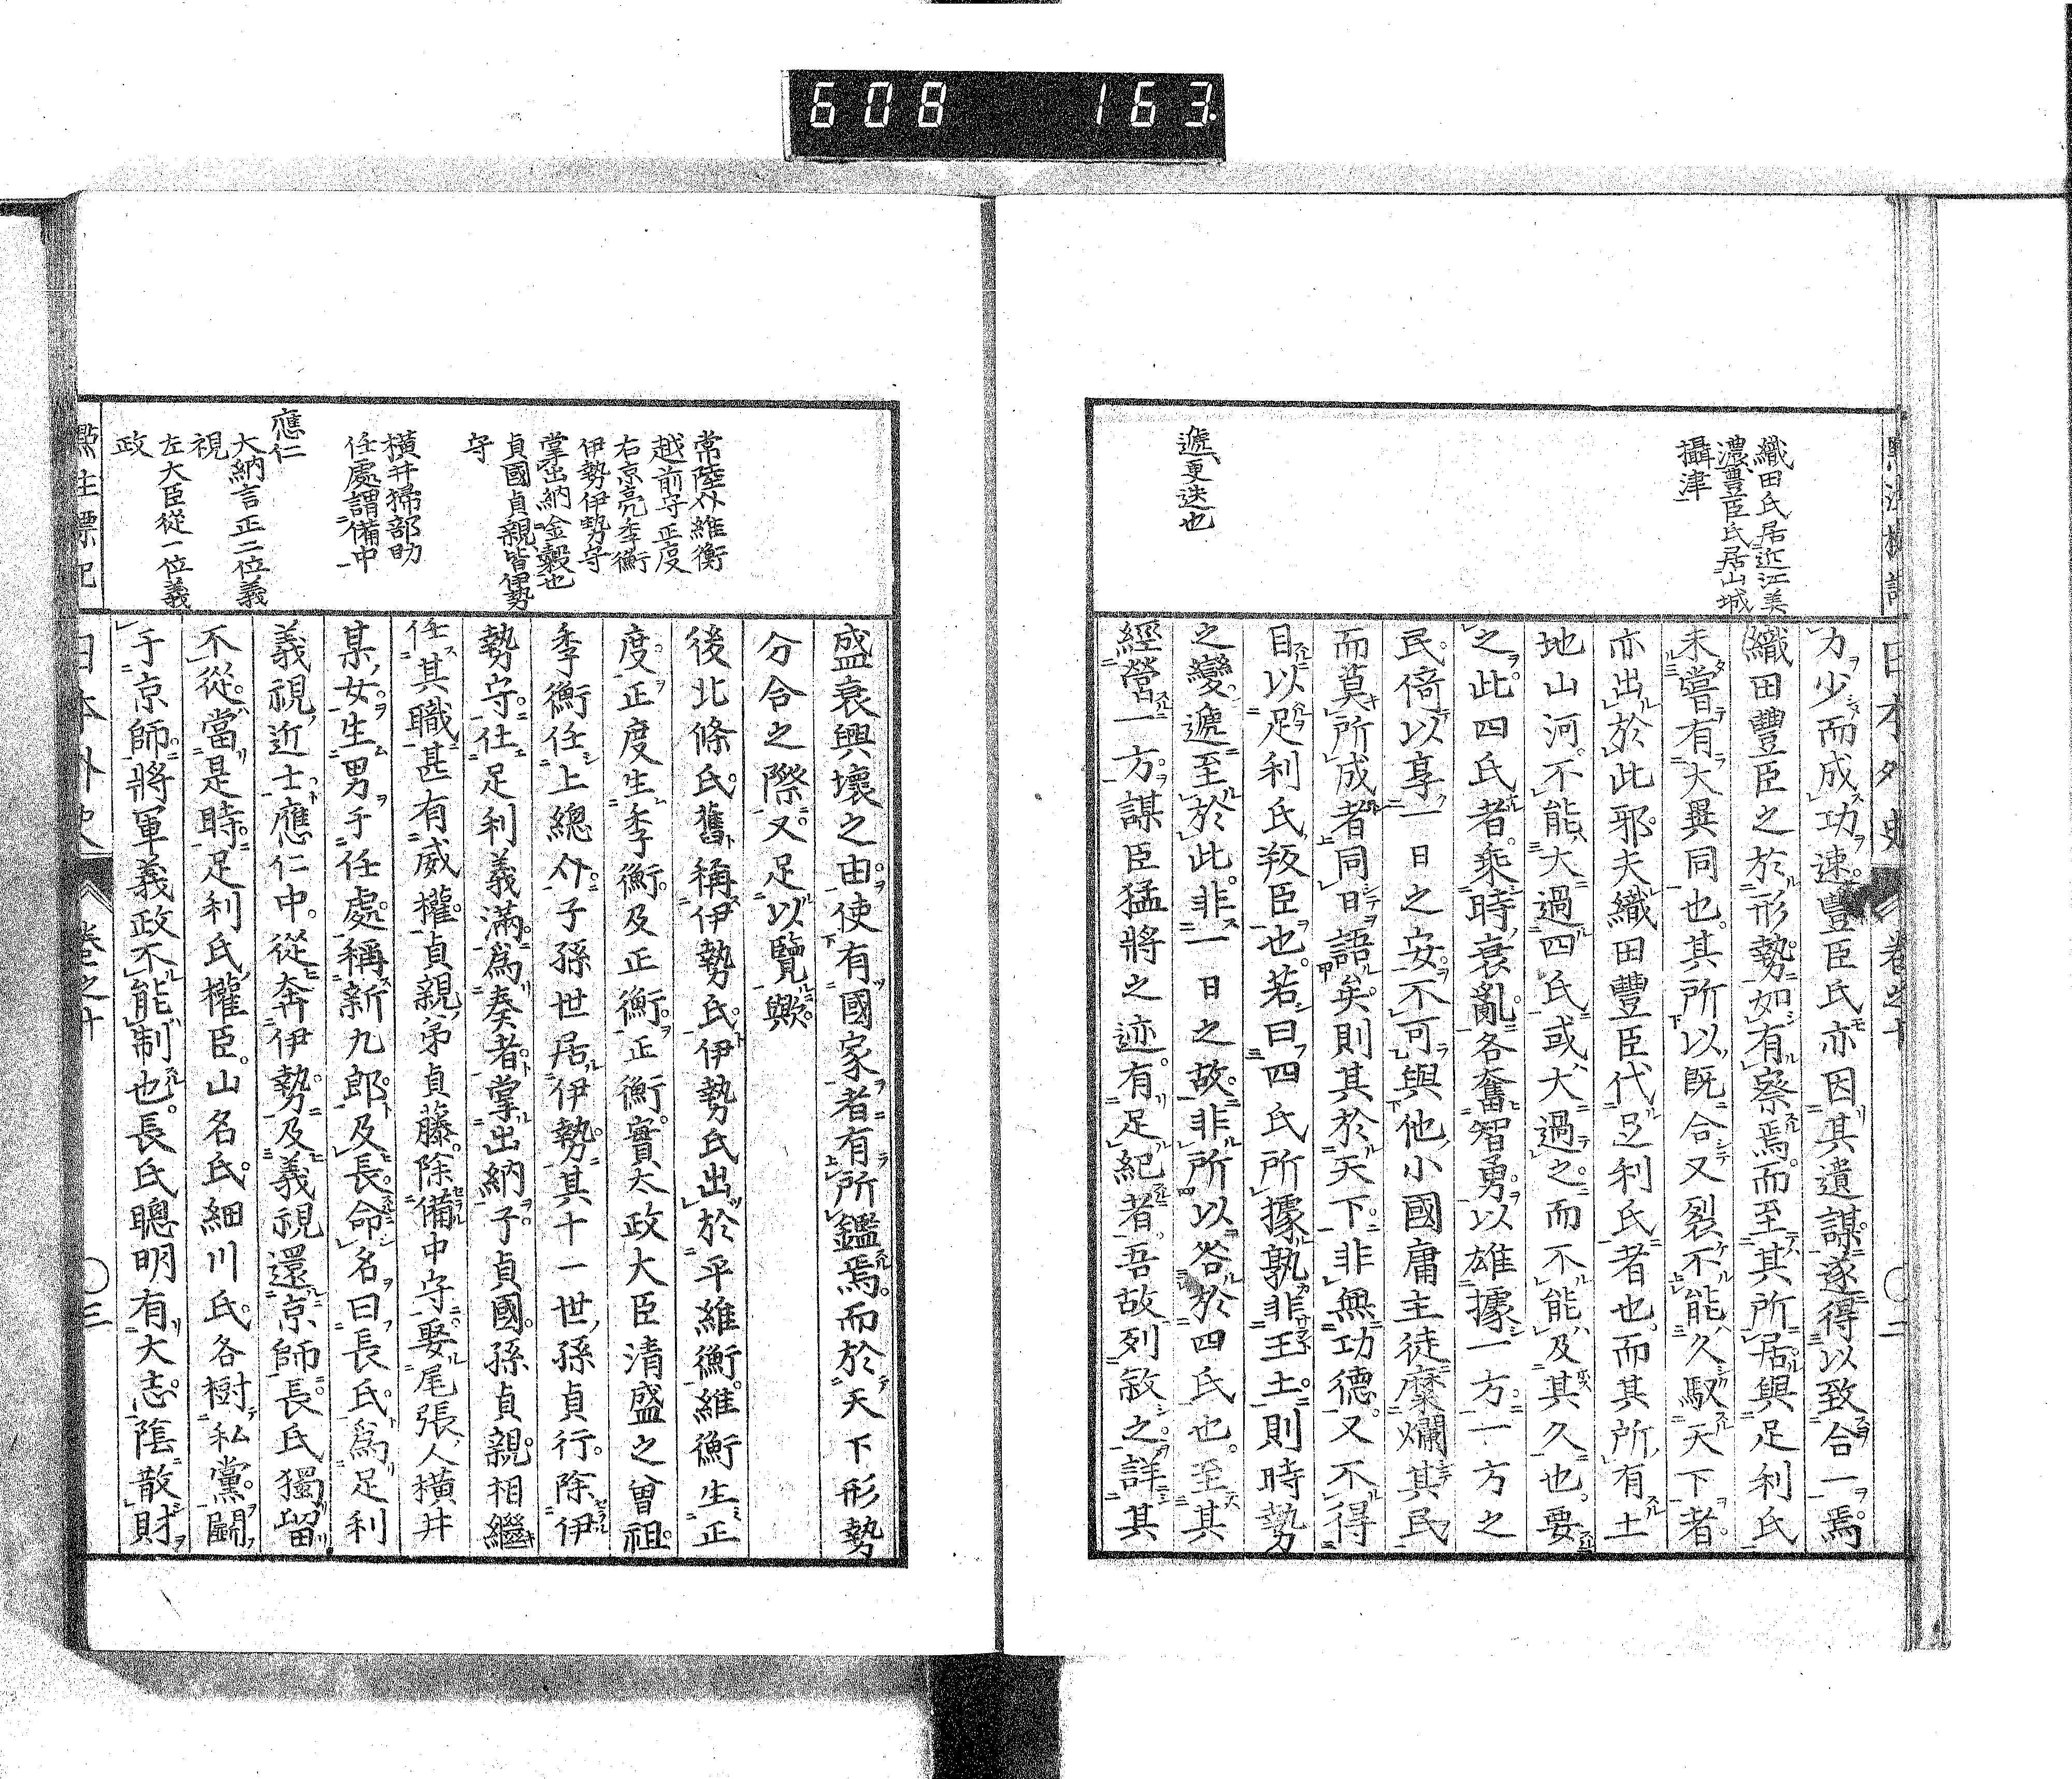 608 163.
織田氏居近江美
濃豐臣氏居山城
攝津
遞更迭也
日本外史 卷之十 〇二
力少而成功速豐臣氏亦因其遺謀遂得以致合一焉
織田豐臣之於形勢如有察焉而至其所居與足利氏
未嘗有大異同也其所以既合又裂不能久馭天下者
亦出於此邪夫織田豐臣代足利氏者也而其所有土
地山河不能大過四氏或大過之而不能及其久也要
之此四氏者乘時衰亂各奮智勇以雄據一方一方之
民倚以享一日之安不可與他小國庸主徒糜爛其民
而莫所成者同日語矣則其於天下非無功德又不得
目以足利氏叛臣也若曰四氏所據孰非王土則時勢
之變遞至於此非一日之故非所以咎於四氏也至其
經營一方謀臣猛將之迹有足紀者吾故列敘之詳其
常陸介維衡
越前守正度
右京亮季衡
伊勢伊勢守
掌出納金穀也
貞國貞親皆伊勢
守
橫井掃部助
任處謂備中
應仁
大納言正二位義
視
左大臣從一位義
政
盛衰興壞之由使有國家者有所鑑焉而於天下形勢
分合之際又足以覽歟
後北條氏舊稱伊勢氏伊勢氏出於平維衡維衡生正
度正度生季衡及正衡正衡實太政大臣清盛之曾祖
季衡任上總介子孫世居伊勢其十一世孫貞行除伊
勢守仕足利義滿爲奏者掌出納子貞國孫貞親相繼
任其職甚有威權貞親弟貞藤除備中守娶尾張人橫井
某女生男于任處稱新九郎及長命名曰長氏爲足利
義視近士應仁中從奔伊勢及義視還京師長氏獨留
不從當是時足利氏權臣山名氏細川氏各樹私黨鬭
于京師將軍義政不能制也長氏聰明有大志陰散財
點註標記 日本外史 卷之十 〇三